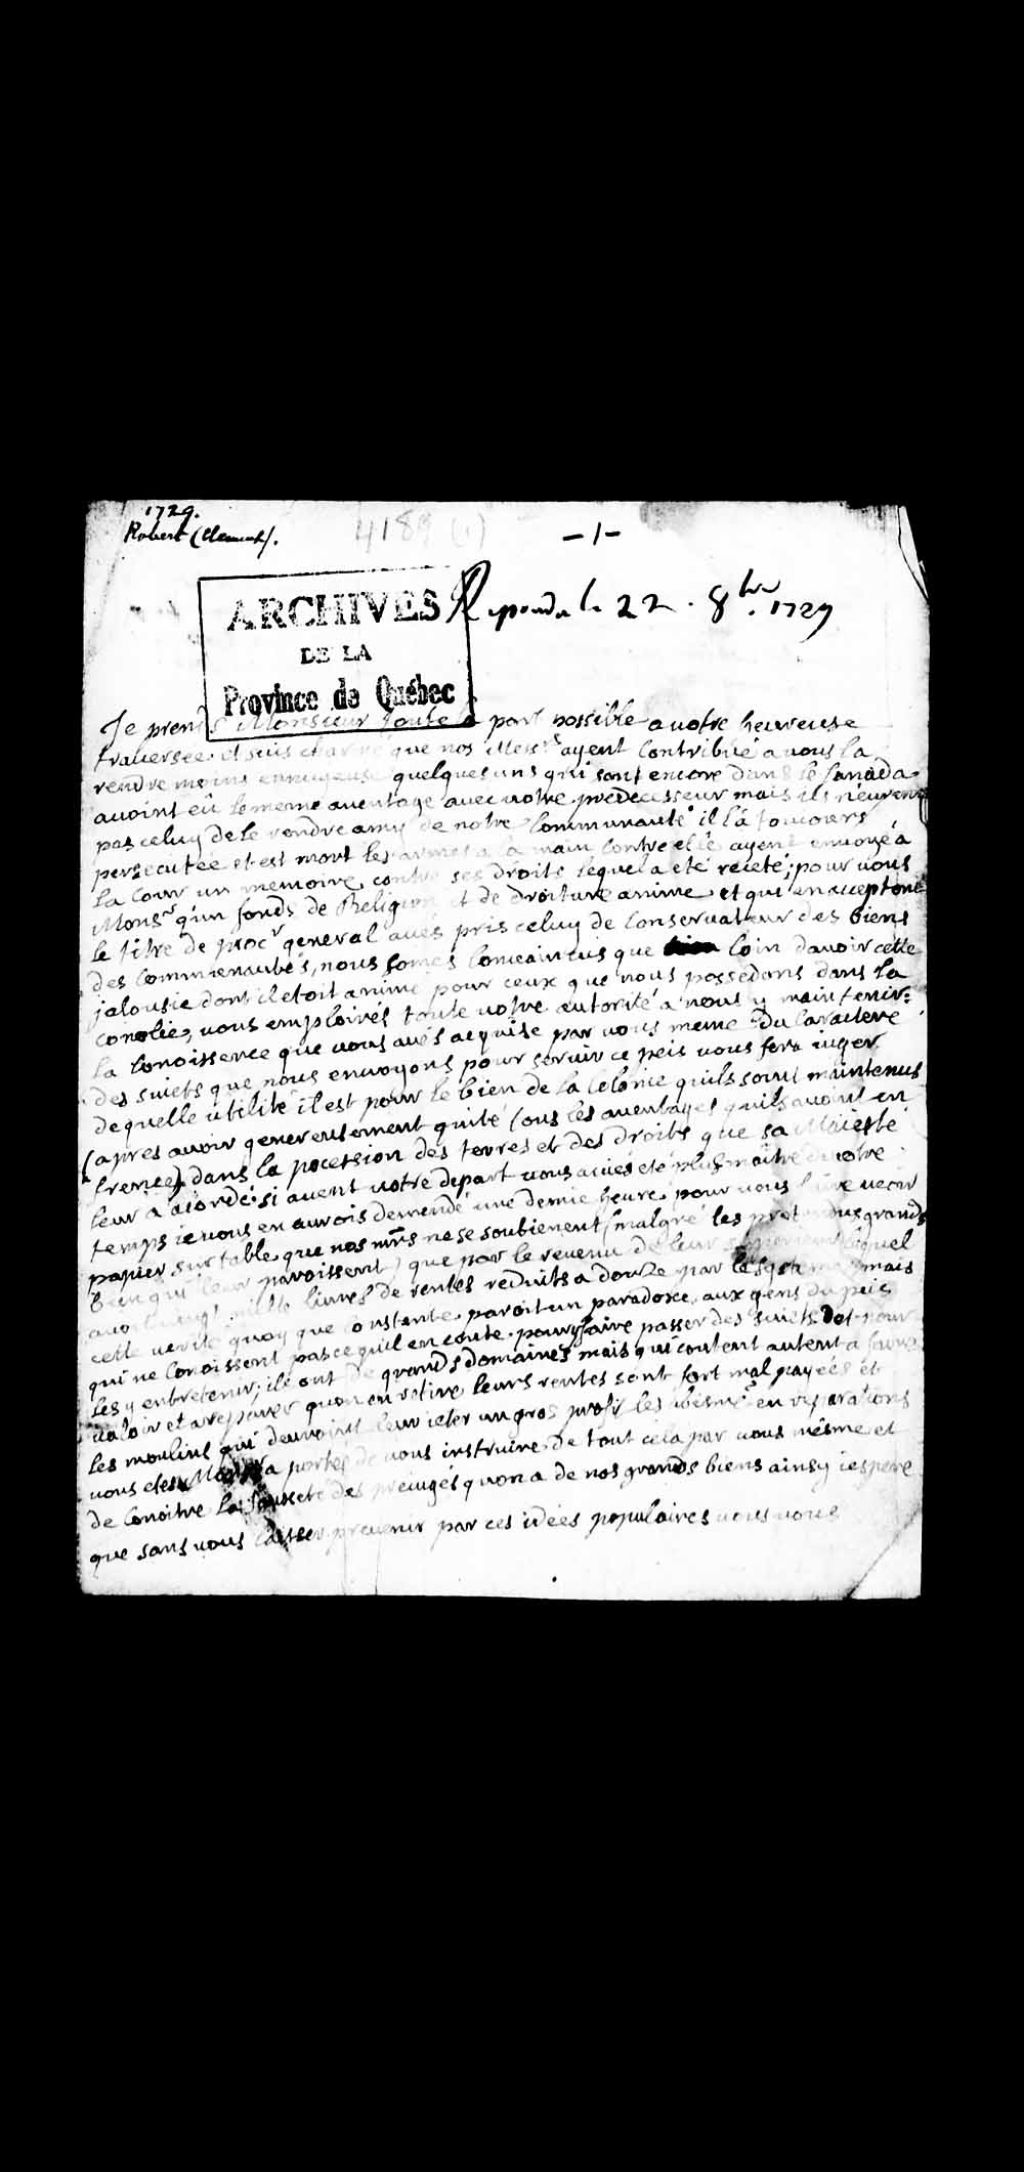 1729.
Robert (Clement).
4189 (1)
-1-
ARCHIVES
DE LA
Province de Québec
Repondu le 22. 8bre. 1729
Je prens Monsieur toute la part possible a votre heureuse
traversée et suis charmé que nos Messrs ayent contribué a vous la
rendre moins ennuyeuse quelques uns qui sont encore dans le Canada
avoint eû le meme aventage avec votre predecesseur mais ils n'eurent
pas celuy de le rendre amy de notre Communauté il l'a toujours
persecutée et est mort les armes a la main contre elle ayent envoyé à
la Cour un memoire contre ses droits lequel a eté reieté; pour vous
Monsr q'un fonds de Religion et de droiture anime et qui en acceptant
le titre de procr general avés pris celuy de Conservateur des biens
des Communautés, nous somes Convaincus que loin davoir cette
jalousie dont il etoit animé pour ceux que nous possedons dans la
conolie, vous emploirés toute votre autorité a nous y maintenir:
la Conoissence que vous avés acquise par vous meme du Caractere
des suiets que nous envoyons pour servir ce peis vous fera iuger
de quelle utilité il est pour le bien de la Colonie quils soint maintenus
(apres avoir genereusement quité tous les aventages quils avoint en
france) dans la pocession des terres et des droits que sa Maiesté
leur a acordé: si avent votre depart vous aviés eté plus maitre de votre
temps ie vous en aurois demendé une demie heure pour vous faire veoir
papier sur table que nos mrs ne se soutienent (malgré les pretendus grands
bien qui leur paroissent) que par le revenu de leur lequel
livres de rentes reduits a douze par le mais
cette verité quoy que constente paroit un paradoxe aux gens du peis
qui ne Conoissent pas ce quil en coute pour y faire passer des suiets et pour
les y entretenir; ils ont de grands domaines mais qui coutent autent a faire
valoir et a reparer quon en retire leurs rentes sont fort mal payées et
les moulins qui devroint leur ieter un gros profit les en reparations
vous etes Monsr a portée de vous instruire de tout cela par vous mésme et
de Conoitre la fausseté des preiugés quon a de nos grands biens ainsy iespere
que sans vous laisser prevenir par ces idées populaires vous vous